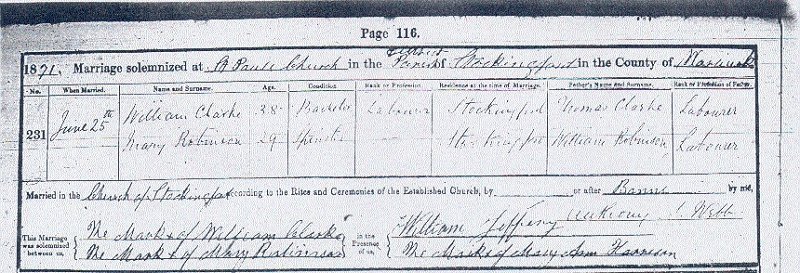 Page 116.
1871. Marriage solemnized at St Pauls Church in the District Parish of Stockingford in the County of Warwick
No. When Married. Name and Surname. Age. Condition Rank or Profession. Residence at the time of Marriage. Father's Name and Surname. Rank or Profession of Father.
231 June 25th William Clarke 28 Bachelor Labourer Stockingford Thomas Clarke Labourer
Mary Robinson 29 Spinster Stockingford William Robinson Labourer
Married in the Church of Stockingford according to the Rites and Ceremonies of the Established Church, by or after Banns by me,
This Marriage was solemnized between us, The Mark of William Clarke in the Presence of us, William Jeffery Webb
The Mark of Mary Robinson The Mark of Mary Ann Harrison